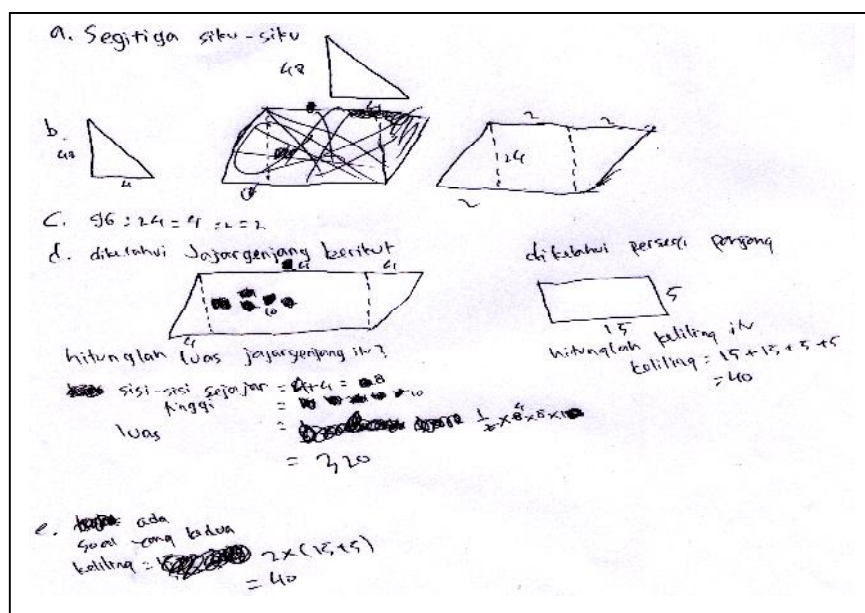 a. Segitiga siku-siku
48
b.
48
4
2 2
24
2
c. 96 : 24 = 4 : 2 = 2
d. diketahui Jajargenjang berikut
4 4
10
4
hitunglah luas jajargenjang itu?
sisi-sisi sejajar = 4+4 = 8
tinggi = 10
luas = 1/2 × 8 × 8 ×
= 320
diketahui persegi panjang
5
15
hitunglah keliling itu
keliling = 15 + 15 + 5 + 5
= 40
e. ada
soal yang kedua
keliling = 2×(15+5)
= 40